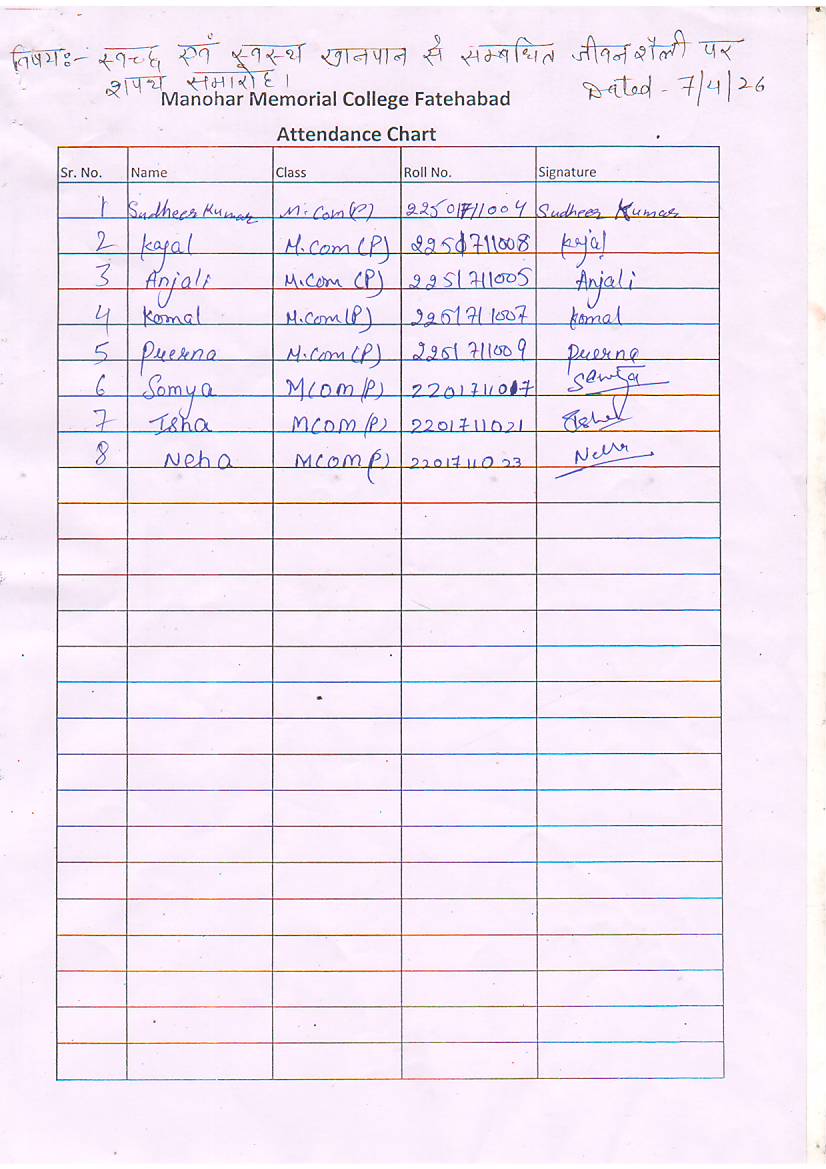 विषयः- स्वच्छ एवं स्वस्थ खानपान से सम्बधित जीवनशैली पर
शपथ समारोह। Dated - 7/4/26
Manohar Memorial College Fatehabad
Attendance Chart
Sr. No. Name Class Roll No. Signature
1 Sudheer Kumar M.Com(P) 22501711004 Sudheer Kumar
2 Kajal M.Com (P) 2251711008 Kajal
3 Anjali M.Com (P) 2251711005 Anjali
4 Komal M.Com(P) 2251711007 Komal
5 Prerna M.Com(P) 2251711009 Prerna
6 Somya MCOM(P) 2201711017 Somya
7 Isha MCOM(P) 2201711021 Isha
8 Neha MCOM(P) 2201711023 Neha